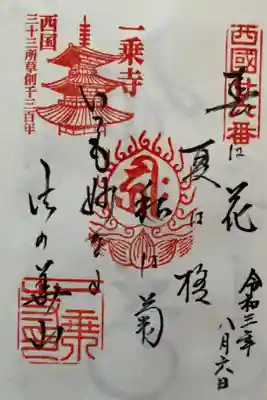 春は花
夏は橘
秋は菊
いつも妙なる
法の華山
令和三年
八月六日
一乗寺
西国
三十三所草創千三百年